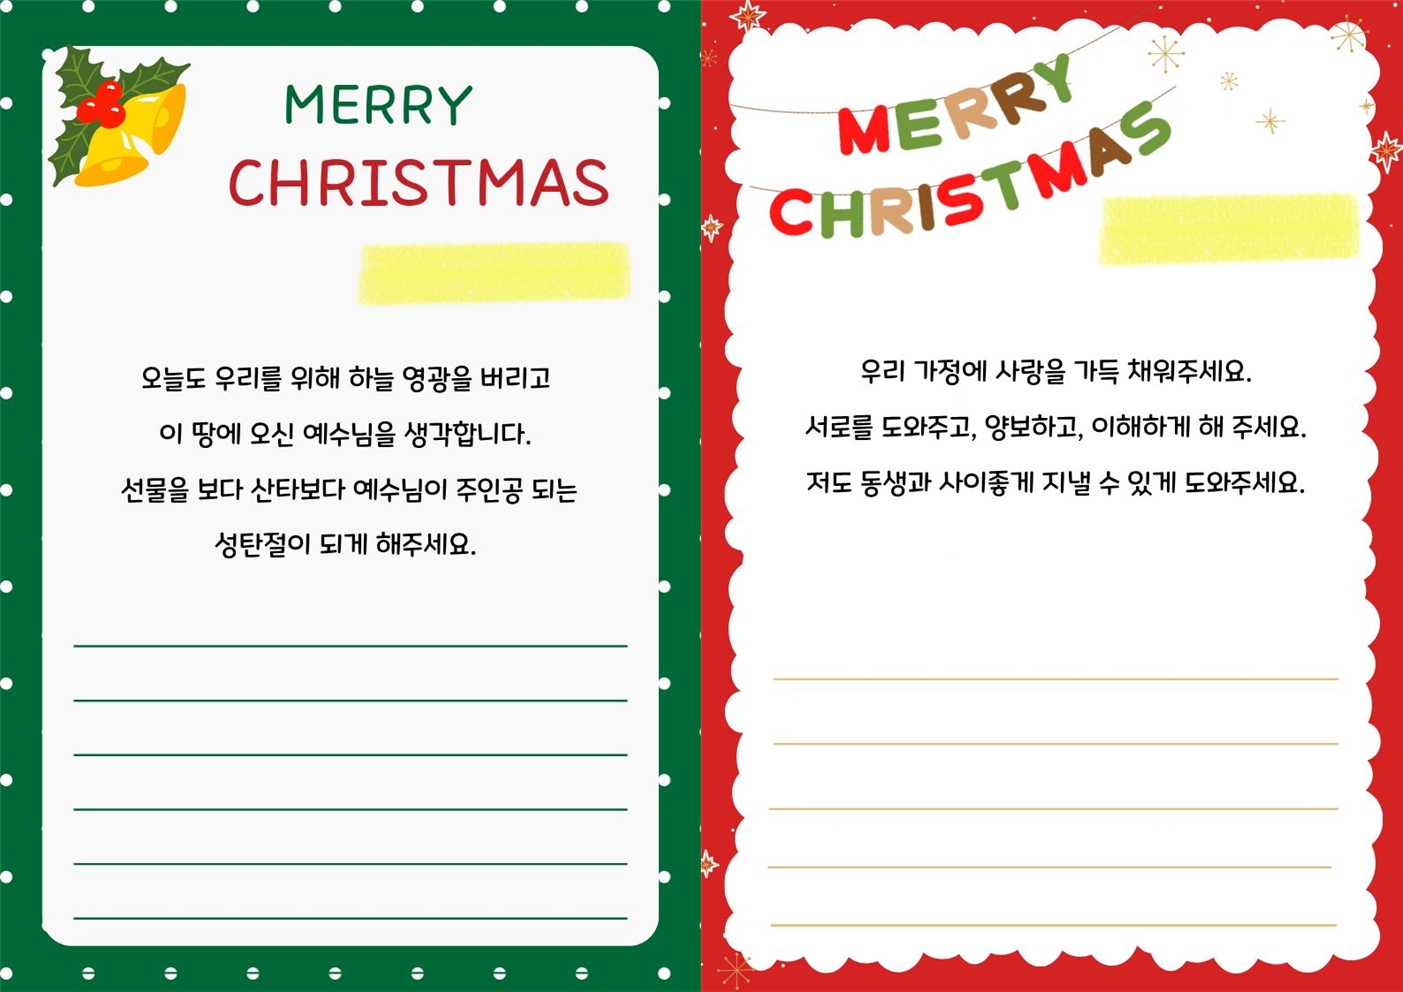 MERRY
CHRISTMAS
오늘도 우리를 위해 하늘 영광을 버리고
이 땅에 오신 예수님을 생각합니다.
선물을 보다 산타보다 예수님이 주인공 되는
성탄절이 되게 해주세요.
MERRY
CHRISTMAS
우리 가정에 사랑을 가득 채워주세요.
서로를 도와주고, 양보하고, 이해하게 해 주세요.
저도 동생과 사이좋게 지낼 수 있게 도와주세요.